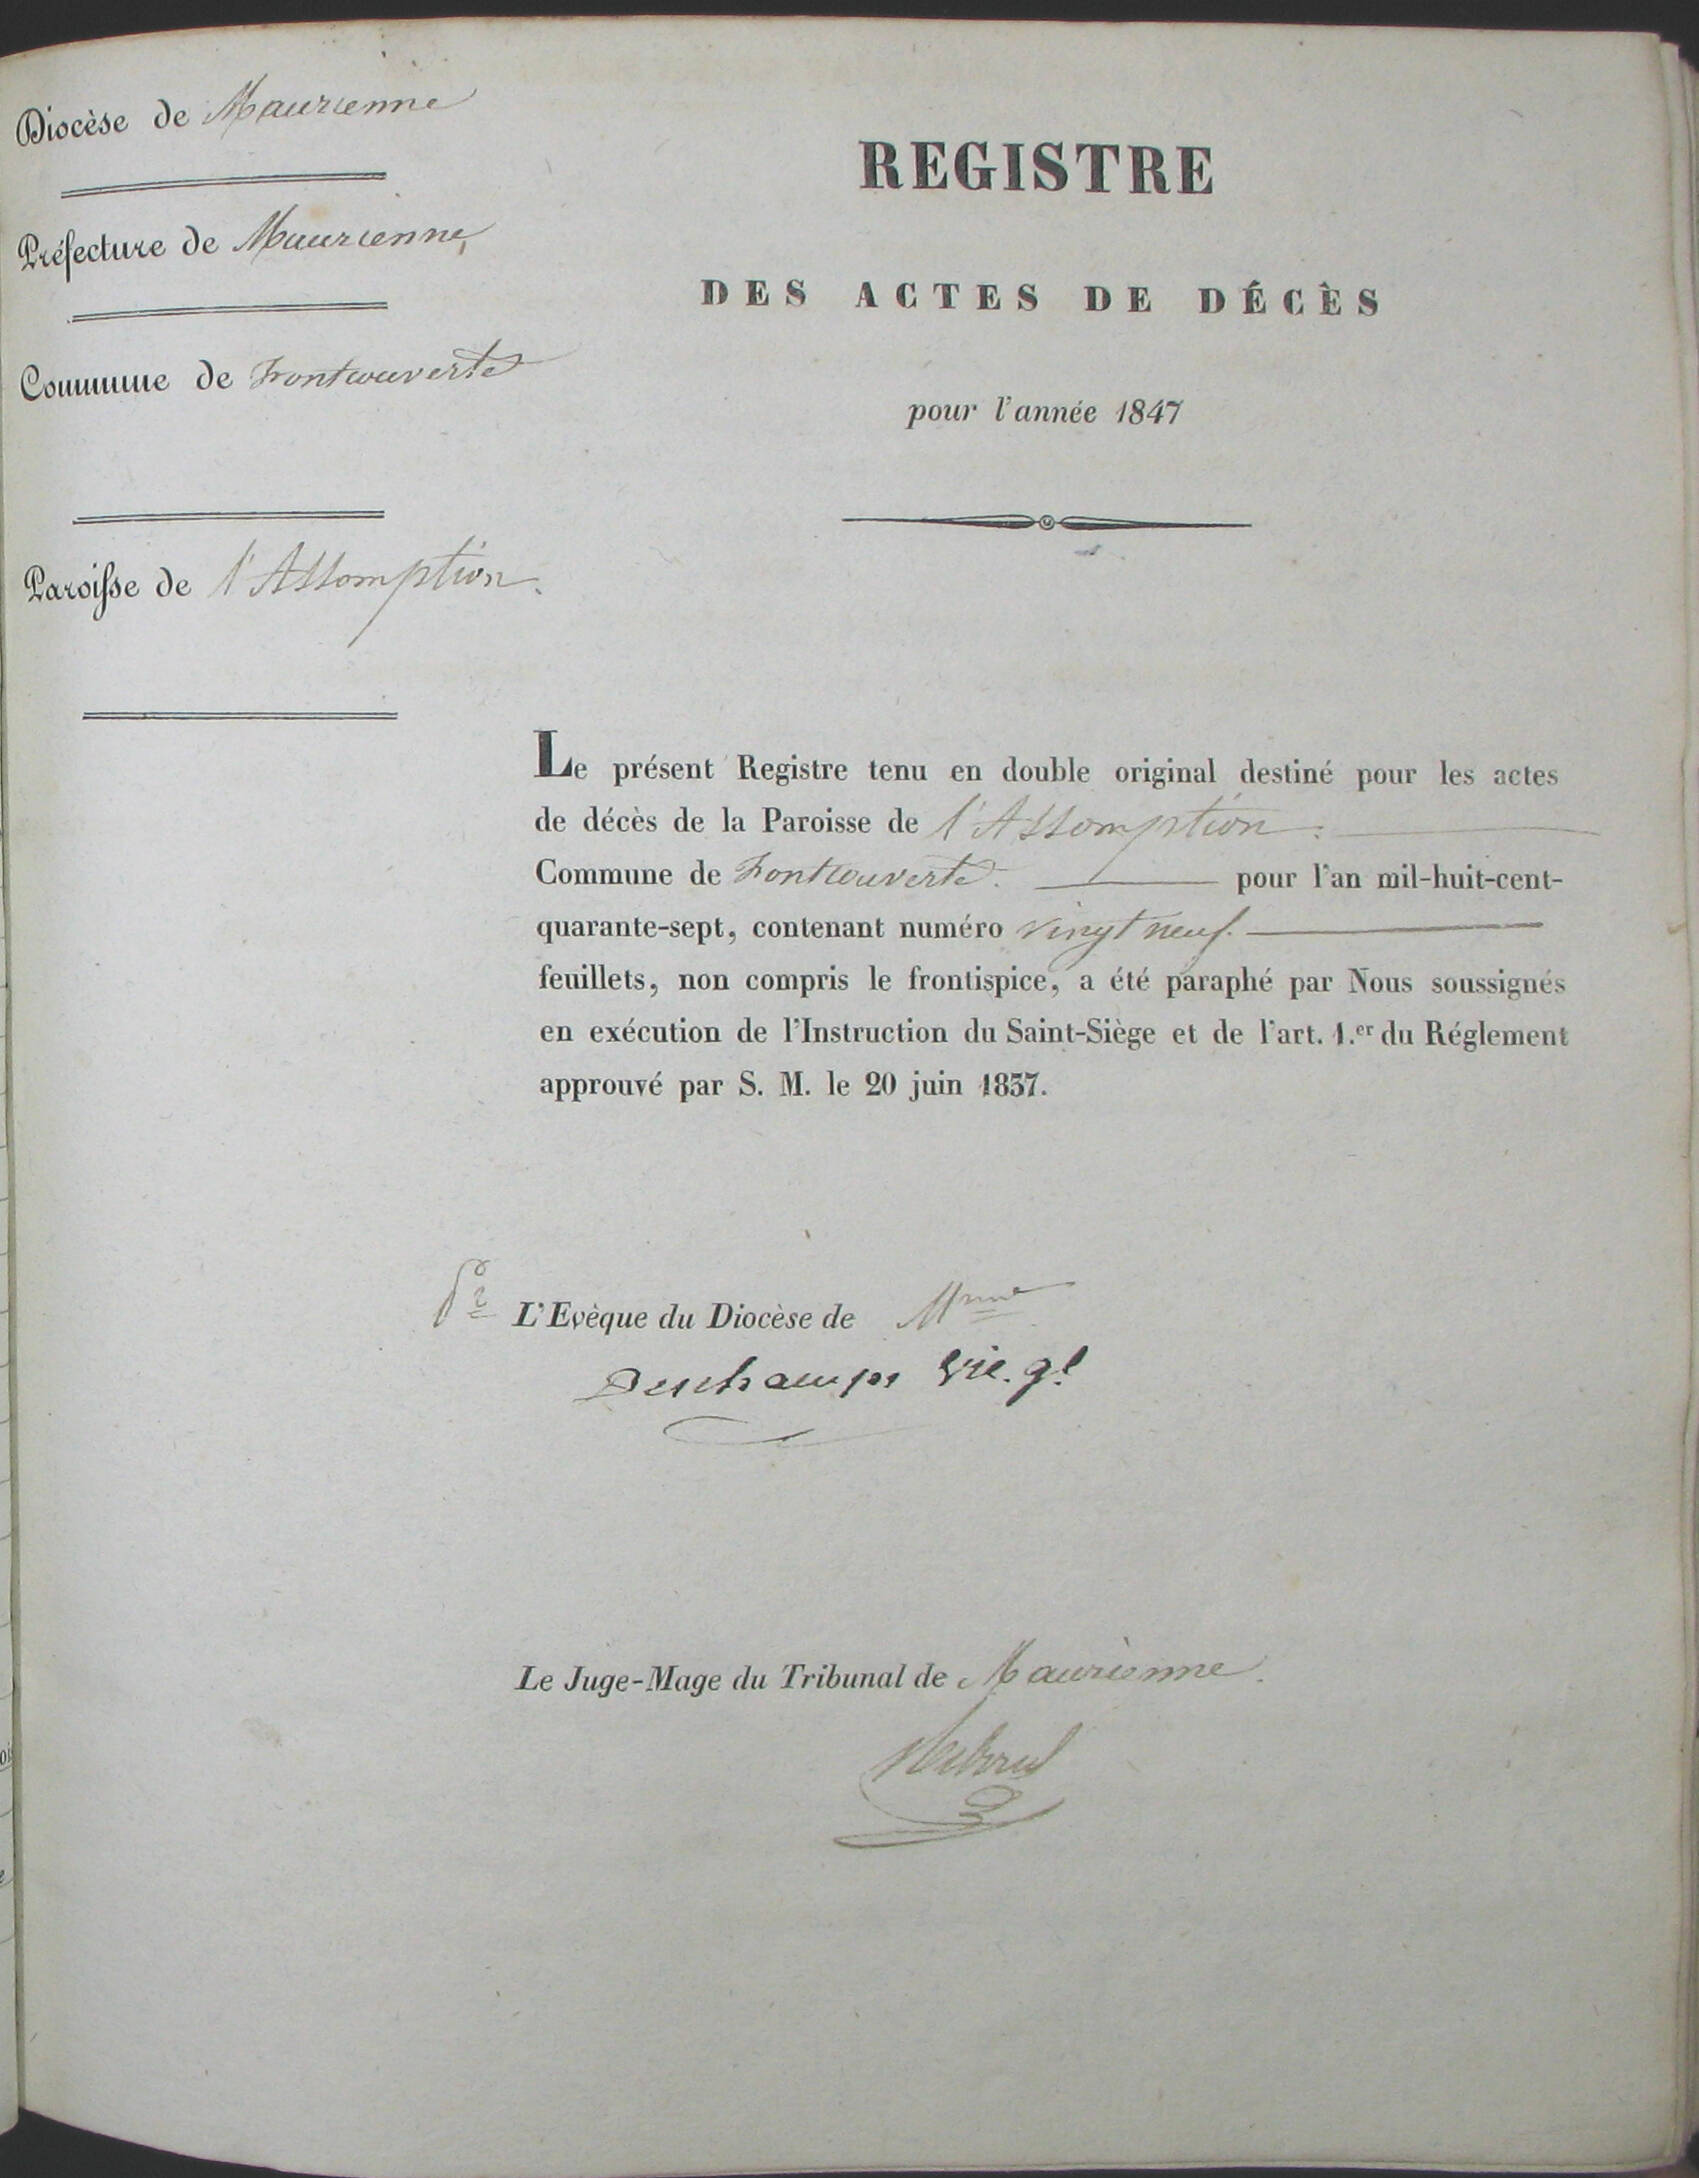 Diocèse de Maurienne
Préfecture de Maurienne
Commune de Fontcouverte
Paroisse de l'Assomption.
REGISTRE
DES ACTES DE DÉCÈS
pour l'année 1847
Le présent Registre tenu en double original destiné pour les actes
de décès de la Paroisse de l'Assomption.
Commune de Fontcouverte. pour l'an mil-huit-cent-
quarante-sept, contenant numéro vingt neuf.
feuillets, non compris le frontispice, a été paraphé par Nous soussignés
en exécution de l'Instruction du Saint-Siège et de l'art. 1.er du Réglement
approuvé par S. M. le 20 juin 1837.
pr L'Evèque du Diocèse de Mnne
Deschamps Vic. gl
Le Juge-Mage du Tribunal de Maurienne.